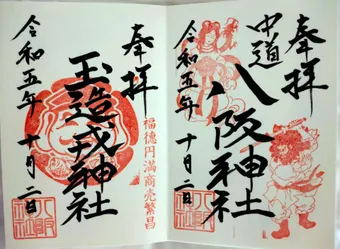 奉拝
中道
八阪神社
令和五年 十月二日
奉拝
福徳円満商売繁昌
玉造戎神社
令和五年 十月二日